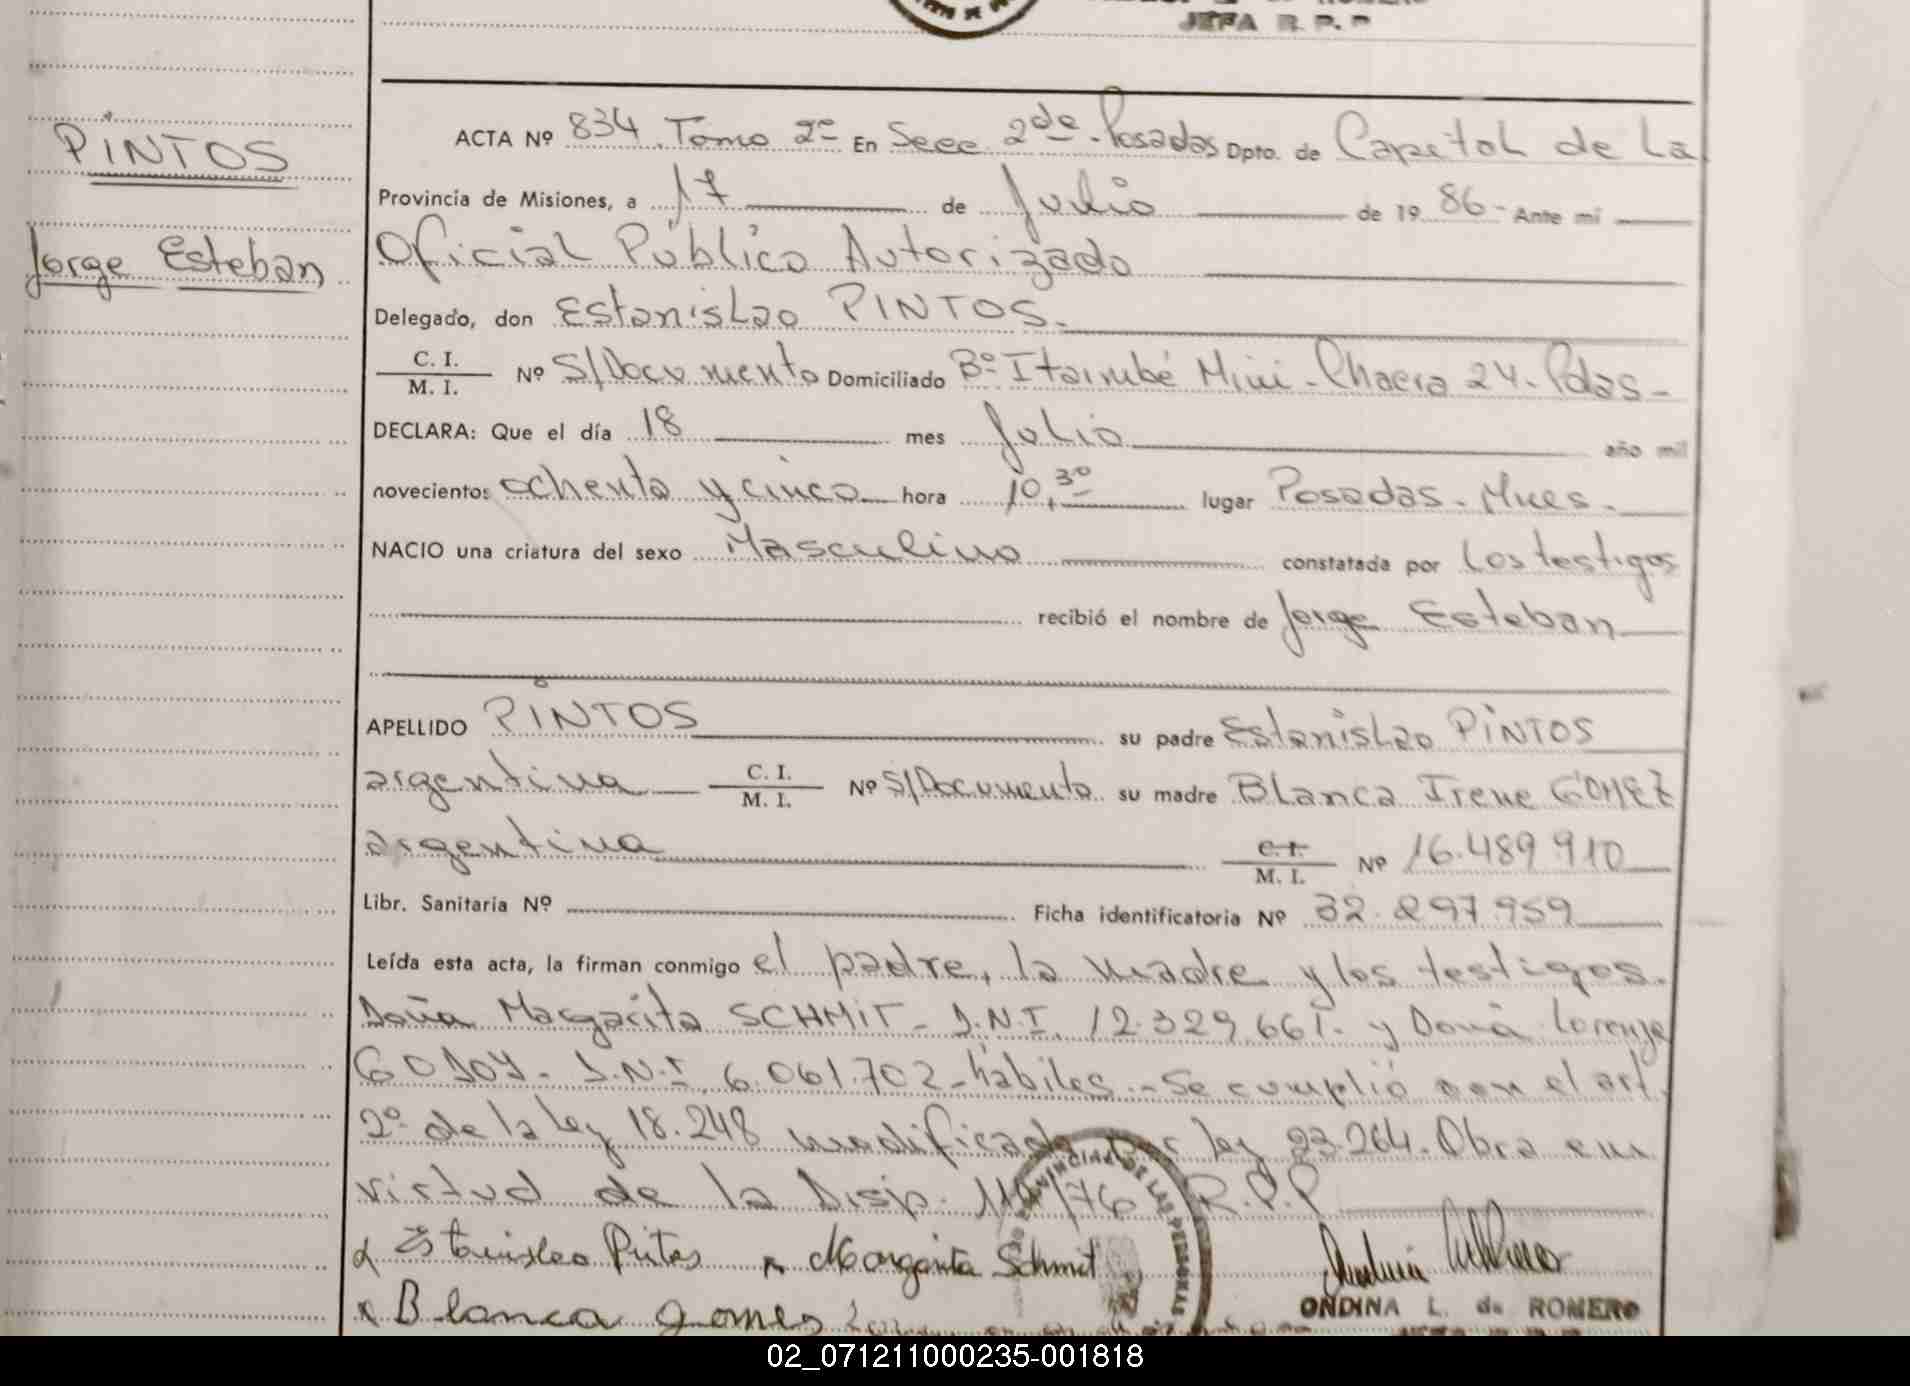 JEFA R. P. P
PINTOS
Jorge Esteban
ACTA Nº 834. Tomo 2º En Secc 2da - Posadas Dpto. de Capital de La
Provincia de Misiones, a 17 de Julio de 19 86 - Ante mi
Oficial Público Autorizado
Delegado, don Estanislao PINTOS.
C. I. / M. I. Nº S/Documento Domiciliado Bº Itaimbé Mini - Chacra 24. Pdas -
DECLARA: Que el día 18 mes Julio año mil
novecientos ochenta y cinco hora 10,30 lugar Posadas - Mnes.
NACIO una criatura del sexo Masculino constatada por los testigos
recibió el nombre de Jorge Esteban
APELLIDO PINTOS su padre Estanislao PINTOS
argentina C. I. / M. I. Nº S/Documento su madre Blanca Irene GOMEZ
argentina C. I. / M. I. Nº 16.489.910
Libr. Sanitaria Nº Ficha identificatoria Nº 32.897.959
Leída esta acta, la firman conmigo el padre, la madre y los testigos.
Doña Margarita SCHMIT - D.N.I. 12.329.661. y Doña Lorenza
GODOY - D.N.I. 6.061.702 - hábiles - Se cumplió con el art.
2º de la ley 18.248 modificada por ley 23.264. Obra en
virtud de la Disp. 114/76 R.P.P
Estanislao Pintos Margarita Schmit
Blanca gomes
PROVINCIAL DE LAS PERSONAS
ONDINA L. de ROMERO
02_071211000235-001818